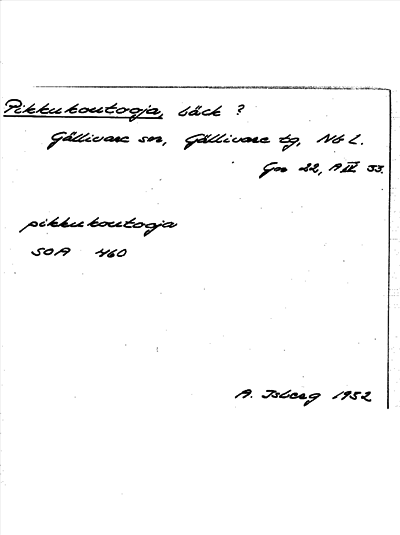 Pikkukoutooja, bäck ?
Gällivare sn, Gällivare tg, Nb l.
Gor 22, A IV 33.
pikkukoutooja
SOA 460
A. Isberg 1952